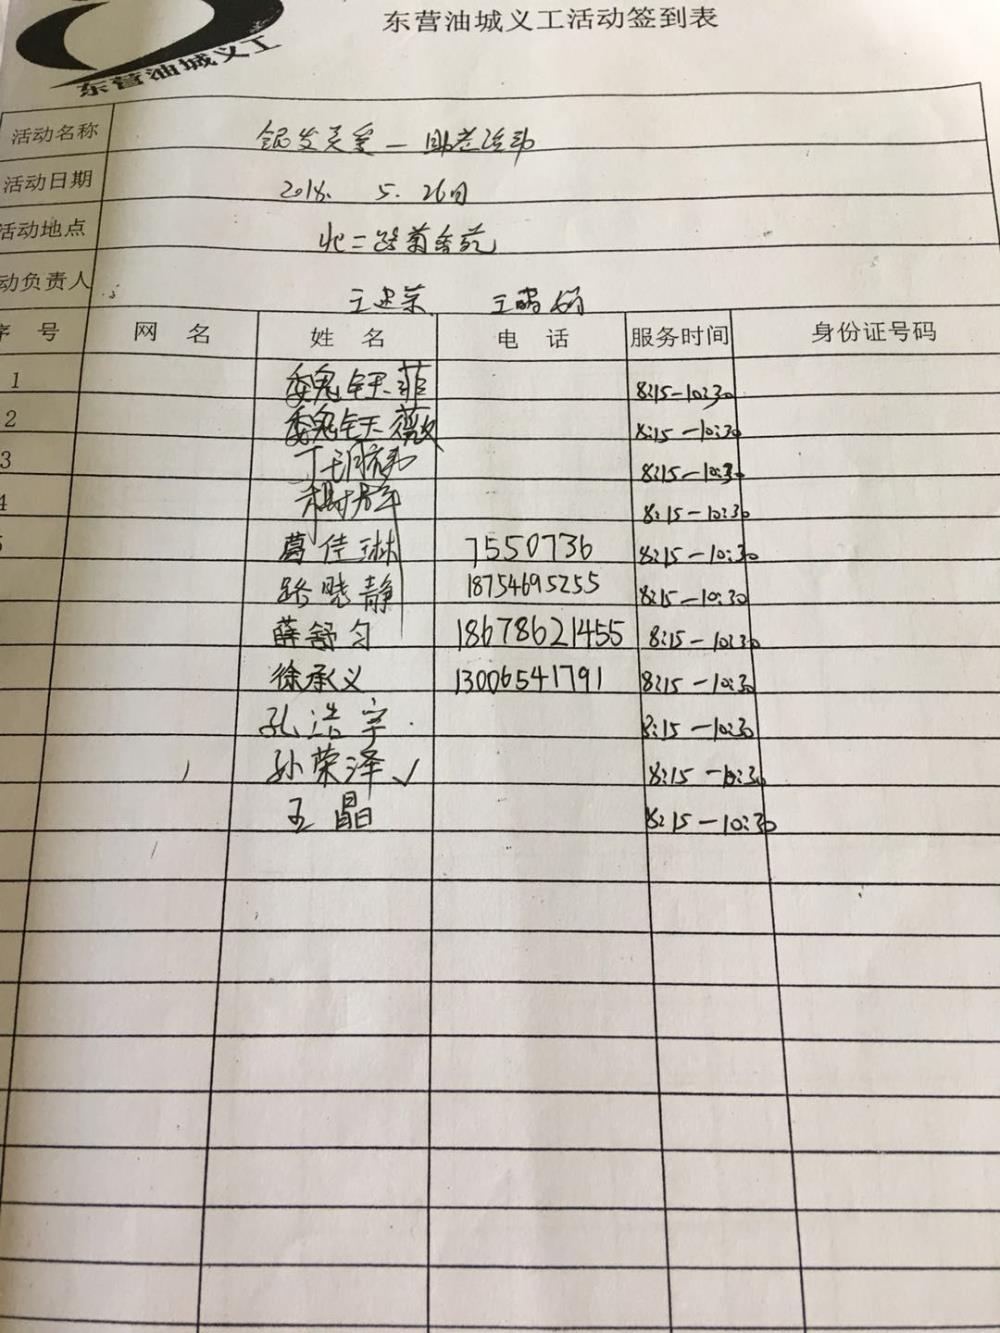 东营油城义工活动签到表
东营油城义工
活动名称 银发关爱—助老活动
活动日期 2018. 5. 26日
活动地点 北二路菊香苑
动负责人 王建荣 王
序 号 网 名 姓 名 电 话 服务时间 身份证号码
1 魏钰菲 8:15-10:30
2 魏钰薇 8:15-10:30
3 8:15-10:30
4 8:15-10:30
5 葛佳琳 7550736 8:15-10:30
路晓静 18754695255 8:15-10:30
薛舒匀 18678621455 8:15-10:30
徐承义 13006541791 8:15-10:30
孔浩宇 8:15-10:30
孙荣泽 ✓ 8:15-10:30
王晶 8:15-10:30